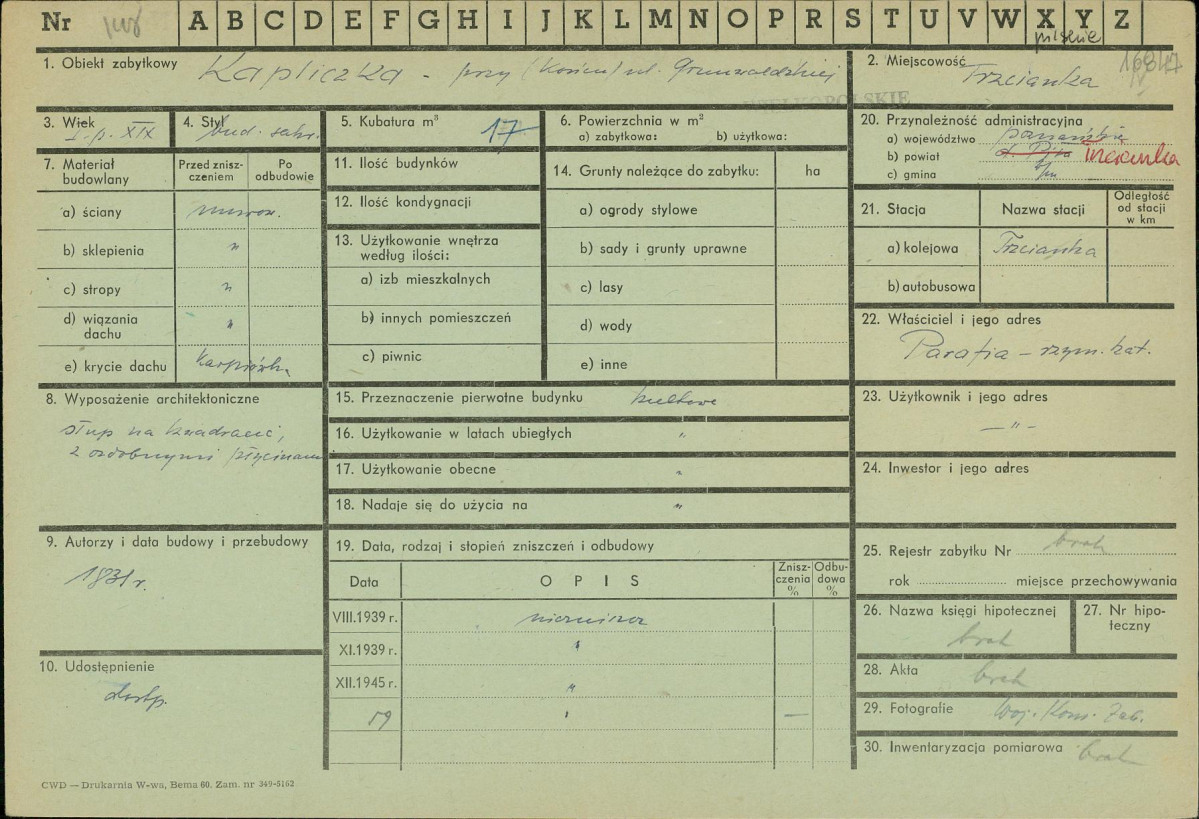 Nr A B C D E F G H I J K L M N O P R S T U V W X Y Z
pilskie
16847
IV
1. Obiekt zabytkowy Kapliczka - przy (Kościu) ul. Grunwaldzkiej
2. Miejscowość Trzcianka
WIELKOPOLSKIE
3. Wiek I. p. XIX
4. Styl bud. sakr.
5. Kubatura m³ 17
6. Powierzchnia w m²
a) zabytkowa: b) użytkowa:
20. Przynależność administracyjna
a) województwo poznańskie
b) powiat Trzcianka
c) gmina
7. Materiał budowlany
Przed zniszczeniem
Po odbudowie
a) ściany murow.
b) sklepienia "
c) stropy "
d) wiązania dachu "
e) krycie dachu karpiówka
11. Ilość budynków
12. Ilość kondygnacji
13. Użytkowanie wnętrza
według ilości:
a) izb mieszkalnych
b) innych pomieszczeń
c) piwnic
14. Grunty należące do zabytku: ha
a) ogrody stylowe
b) sady i grunty uprawne
c) lasy
d) wody
e) inne
21. Stacja
Nazwa stacji
Odległość od stacji w km
a) kolejowa Trzcianka
b) autobusowa
22. Właściciel i jego adres
Parafia - rzym. kat.
8. Wyposażenie architektoniczne
słup na kwadracie,
z ozdobnymi płycinami
15. Przeznaczenie pierwotne budynku kultowe
16. Użytkowanie w latach ubiegłych "
17. Użytkowanie obecne "
18. Nadaje się do użycia na "
23. Użytkownik i jego adres
- " -
24. Inwestor i jego adres
9. Autorzy i data budowy i przebudowy
1831 r.
10. Udostępnienie
dostęp.
19. Data, rodzaj i stopień zniszczeń i odbudowy
Data OPIS Zniszczenia % Odbudowa %
VIII.1939 r. niezniszcz.
XI.1939 r. "
XII.1945 r. "
59 " —
25. Rejestr zabytku Nr brak
rok miejsce przechowywania
26. Nazwa księgi hipotecznej
brak
27. Nr hipoteczny
28. Akta brak
29. Fotografie Woj. Kons. Zab.
30. Inwentaryzacja pomiarowa brak
CWD — Drukarnia W-wa, Bema 60. Zam. nr 349-5162